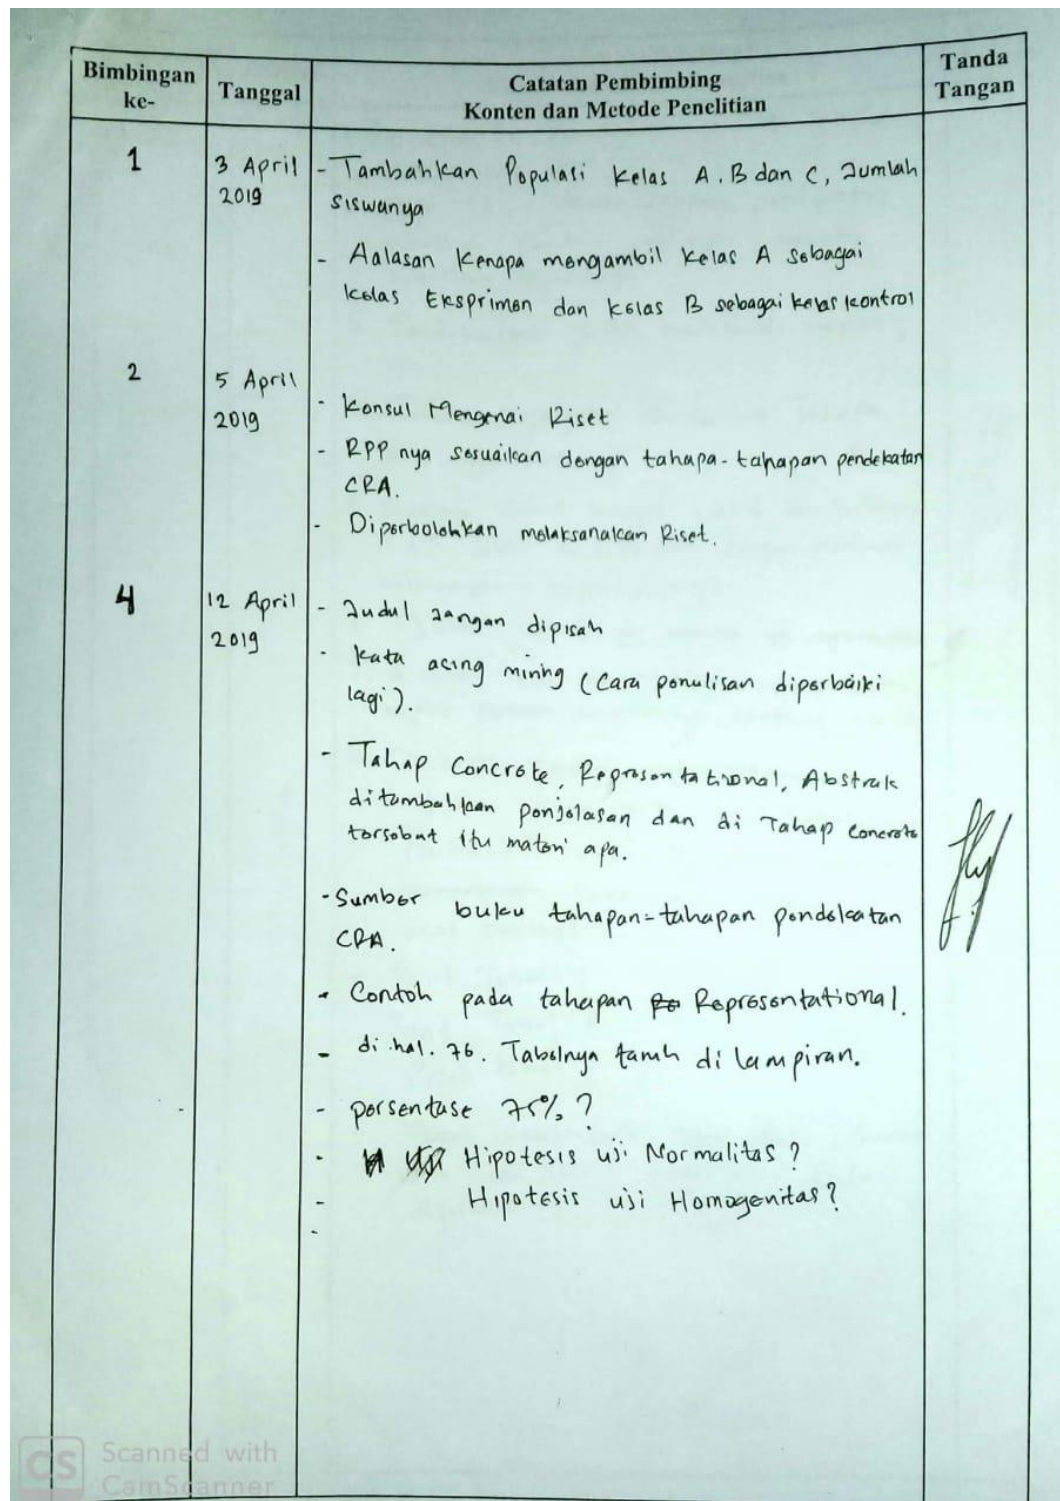 Bimbingan ke-
Tanggal
Catatan Pembimbing
Konten dan Metode Penelitian
Tanda Tangan
1
3 April
2019
- Tambahkan Populasi Kelas A, B dan C, Jumlah
siswanya
- Aalasan Kenapa mengambil Kelas A sebagai
kelas Eksprimen dan kelas B sebagai kelas kontrol
2
5 April
2019
- Konsul Mengenai Riset
- RPP nya sesuaikan dengan tahapa-tahapan pendekatan
CRA.
- Diperbolehkan melaksanakan Riset.
4
12 April
2019
- Judul Jangan dipisah
- Kata asing miring (Cara penulisan diperbaiki
lagi).
- Tahap Concrete, Representational, Abstrak
ditambahkan penjelasan dan di Tahap concrete
tersebut itu materi apa.
- Sumber buku tahapan-tahapan pendekatan
CRA.
- Contoh pada tahapan Representational.
- di hal. 76. Tabelnya taruh di lampiran.
- persentase 75% ?
- Hipotesis uji Normalitas ?
- Hipotesis uji Homogenitas ?
-
CS Scanned with
CamScanner